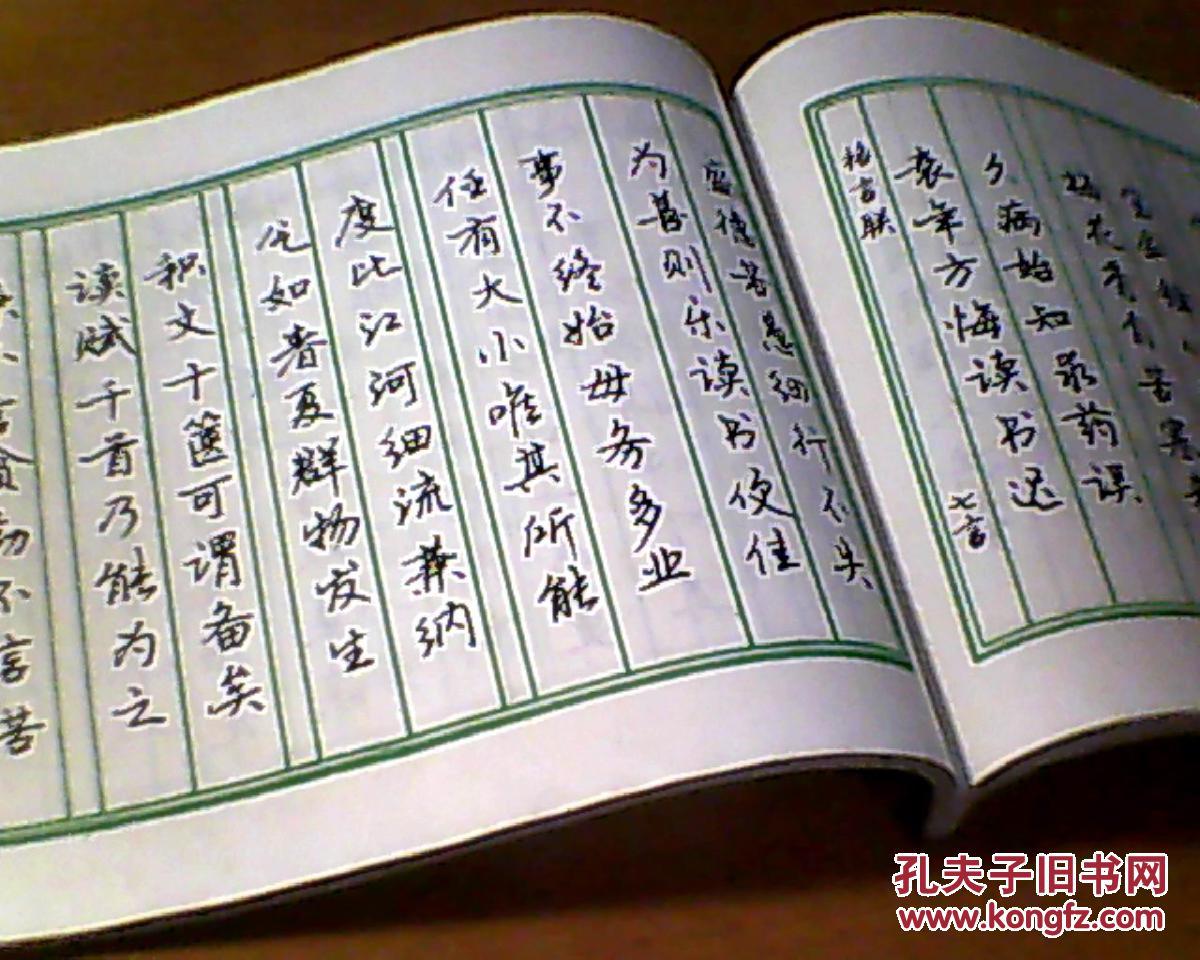 梅花香自苦寒来
久病始知求药误
衰年方悔读书迟
七言
格言联
德者细行不失
为善则乐读书便佳
事不终始毋务多业
任有大小唯其所能
度比江河细流兼纳
气如春夏群物发生
积文十箧可谓备矣
读赋千首乃能为之
不言贫勤不言苦
孔夫子旧书网
www.kongfz.com